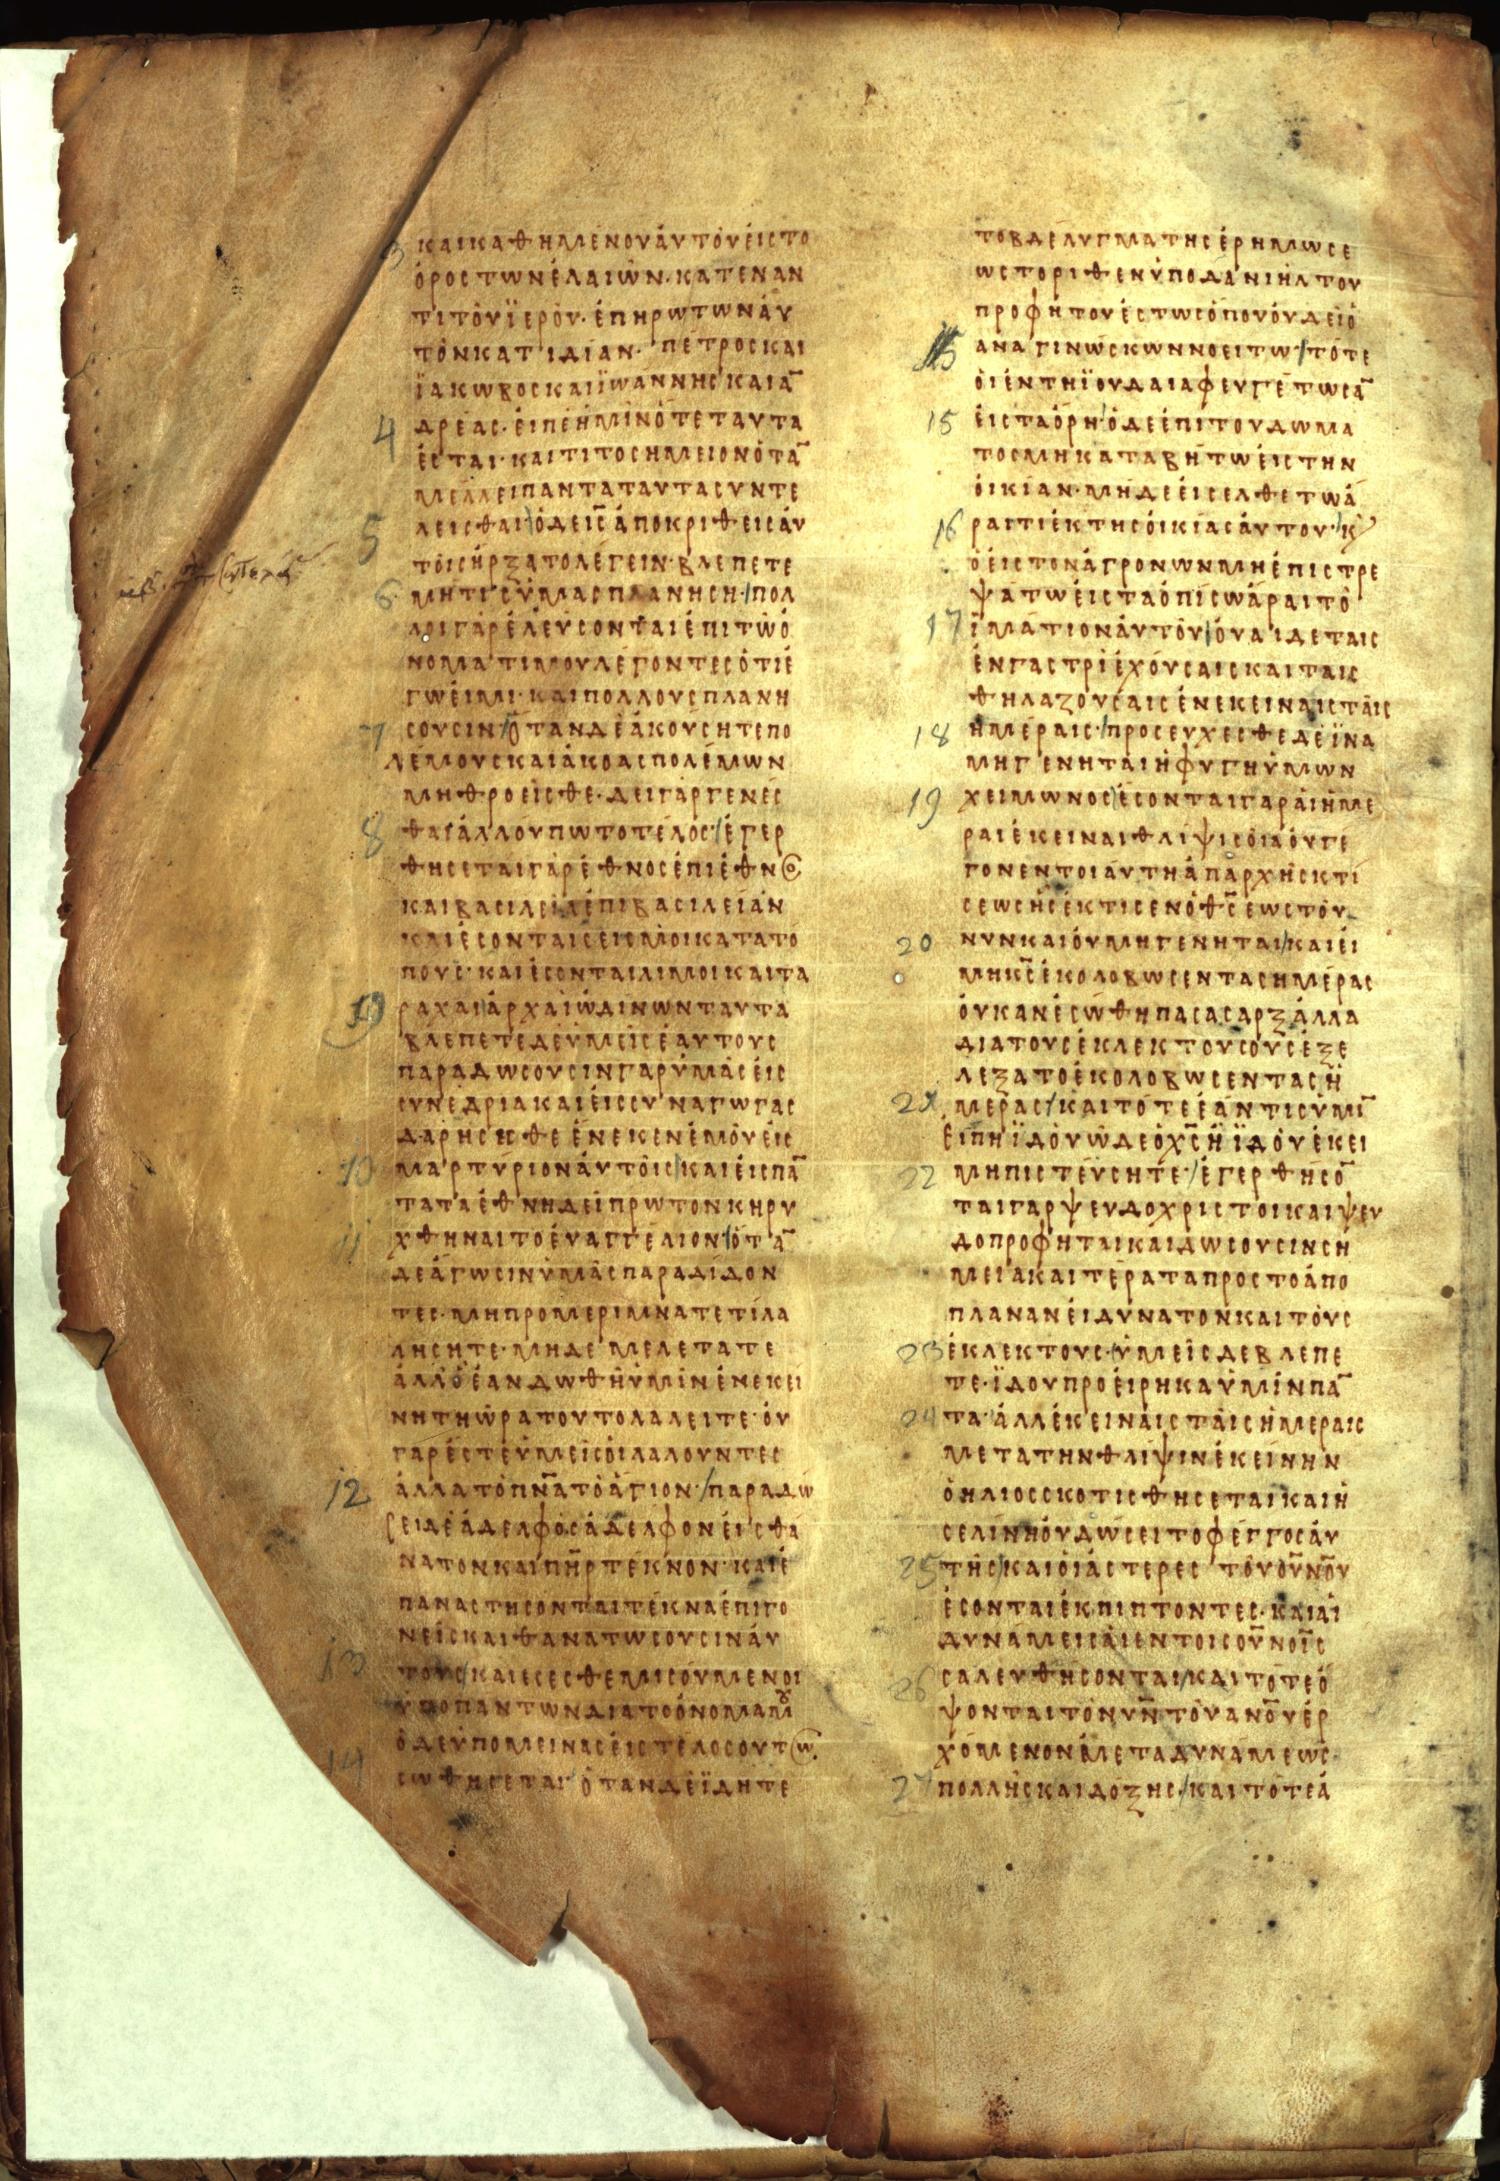 3 ΚΑΙΚΑΘΗΜΕΝΟΥΑΥΤΟΥΕΙΣΤΟ
ΟΡΟΣΤΩΝΕΛΑΙΩΝ·ΚΑΤΕΝΑΝ
ΤΙΤΟΥΪΕΡΟΥ·ΕΠΗΡΩΤΩΝΑΥ
ΤΟΝΚΑΤΙΔΙΑΝ·ΠΕΤΡΟΣΚΑΙ
ΪΑΚΩΒΟΣΚΑΙΪΩΑΝΝΗΣΚΑΙΑ̅
4 ΔΡΕΑΣ·ΕΙΠΕΗΜΙΝΟΤΕΤΑΥΤΑ
ΕΣΤΑΙ·ΚΑΙΤΙΤΟΣΗΜΕΙΟΝΟΤΑ̅
ΜΕΛΛΕΙΠΑΝΤΑΤΑΥΤΑΣΥΝΤΕ
5 ΛΕΙΣΘΑΙ/ΟΔΕΙ̅Σ̅ΑΠΟΚΡΙΘΕΙΣΑΥ
ΤΟΙΣΗΡΞΑΤΟΛΕΓΕΙΝ·ΒΛΕΠΕΤΕ
6 ΜΗΤΙΣΥΜΑΣΠΛΑΝΗΣΗ·/ΠΟΛ
ΛΟΙΓΑΡΕΛΕΥΣΟΝΤΑΙΕΠΙΤΩΟ
ΝΟΜΑΤΙΜΟΥΛΕΓΟΝΤΕΣΟΤΙΕ
ΓΩΕΙΜΙ·ΚΑΙΠΟΛΛΟΥΣΠΛΑΝΗ
7 ΣΟΥΣΙΝ/ΟΤΑΝΔΕΑΚΟΥΣΗΤΕΠΟ
ΛΕΜΟΥΣΚΑΙΑΚΟΑΣΠΟΛΕΜΩΝ
ΜΗΘΡΟΕΙΣΘΕ·ΔΕΙΓΑΡΓΕΝΕΣ
8 ΘΑΙΑΛΛΟΥΠΩΤΟΤΕΛΟΣ·/ΕΓΕΡ
ΘΗΣΕΤΑΙΓΑΡΕΘΝΟΣΕΠΙΕΘΝΟΣ
ΚΑΙΒΑΣΙΛΕΙΑΕΠΙΒΑΣΙΛΕΙΑΝ
ΚΑΙΕΣΟΝΤΑΙΣΕΙΣΜΟΙΚΑΤΑΤΟ
ΠΟΥΣ·ΚΑΙΕΣΟΝΤΑΙΛΙΜΟΙΚΑΙΤΑ
9 ΡΑΧΑΙ/ΑΡΧΑΙΩΔΙΝΩΝΤΑΥΤΑ
ΒΛΕΠΕΤΕΔΕΥΜΕΙΣΕΑΥΤΟΥΣ
ΠΑΡΑΔΩΣΟΥΣΙΝΓΑΡΥΜΑΣΕΙΣ
ΣΥΝΕΔΡΙΑΚΑΙΕΙΣΣΥΝΑΓΩΓΑΣ
ΔΑΡΗΣΕΣΘΕΕΝΕΚΕΝΕΜΟΥΕΙΣ
10 ΜΑΡΤΥΡΙΟΝΑΥΤΟΙΣ/ΚΑΙΕΙΣΠΑ̅
ΤΑΤΑΕΘΝΗΔΕΙΠΡΩΤΟΝΚΗΡΥ
11 ΧΘΗΝΑΙΤΟΕΥΑΓΓΕΛΙΟΝ/ΟΤΑ̅
ΔΕΑΓΩΣΙΝΥΜΑΣΠΑΡΑΔΙΔΟΝ
ΤΕΣ·ΜΗΠΡΟΜΕΡΙΜΝΑΤΕΤΙΛΑ
ΛΗΣΗΤΕ·ΜΗΔΕΜΕΛΕΤΑΤΕ
ΑΛΛΟΕΑΝΔΩΘΗΥΜΙΝΕΝΕΚΕΙ
ΝΗΤΗΩΡΑΤΟΥΤΟΛΑΛΕΙΤΕ·ΟΥ
ΓΑΡΕΣΤΕΥΜΕΙΣΟΙΛΑΛΟΥΝΤΕΣ
12 ΑΛΛΑΤΟΠ̅Ν̅Α̅ΤΟΑΓΙΟΝ·/ΠΑΡΑΔΩ
ΣΕΙΔΕΑΔΕΛΦΟΣΑΔΕΛΦΟΝΕΙΣΘΑ
ΝΑΤΟΝΚΑΙΠ̅Η̅Ρ̅ΤΕΚΝΟΝ·ΚΑΙΕ
ΠΑΝΑΣΤΗΣΟΝΤΑΙΤΕΚΝΑΕΠΙΓΟ
ΝΕΙΣΚΑΙΘΑΝΑΤΩΣΟΥΣΙΝΑΥ
13 ΤΟΥΣ/ΚΑΙΕΣΕΣΘΕΜΙΣΟΥΜΕΝΟΙ
ΥΠΟΠΑΝΤΩΝΔΙΑΤΟΟΝΟΜΑΜΟΥ
ΟΔΕΥΠΟΜΕΙΝΑΣΕΙΣΤΕΛΟΣΟΥΤΩΣ
14 ΣΩΘΗΣΕΤΑΙ·ΟΤΑΝΔΕΪΔΗΤΕ
ΤΟΒΔΕΛΥΓΜΑΤΗΣΕΡΗΜΩΣΕ
ΩΣΤΟΡΙΘΕΝΥΠΟΔΑΝΙΗΛΤΟΥ
ΠΡΟΦΗΤΟΥΕΣΤΩΣΟΠΟΥΟΥΔΕΙΟ
15 ΑΝΑΓΙΝΩΣΚΩΝΝΟΕΙΤΩ·/ΤΟΤΕ
ΟΙΕΝΤΗΪΟΥΔΑΙΑΦΕΥΓΕΤΩΣΑ̅
15 ΕΙΣΤΑΟΡΗ/ΟΔΕΕΠΙΤΟΥΔΩΜΑ
ΤΟΣΜΗΚΑΤΑΒΗΤΩΕΙΣΤΗΝ
ΟΙΚΙΑΝ·ΜΗΔΕΕΙΣΕΛΘΕΤΩΑ
16 ΡΑΙΤΙΕΚΤΗΣΟΙΚΙΑΣΑΥΤΟΥ·/Κ
ΟΕΙΣΤΟΝΑΓΡΟΝΩΝΜΗΕΠΙΣΤΡΕ
ΨΑΤΩΕΙΣΤΑΟΠΙΣΩΑΡΑΙΤΟ
17 ΙΜΑΤΙΟΝΑΥΤΟΥ/ΟΥΑΙΔΕΤΑΙΣ
ΕΝΓΑΣΤΡΙΕΧΟΥΣΑΙΣΚΑΙΤΑΙΣ
ΘΗΛΑΖΟΥΣΑΙΣΕΝΕΚΕΙΝΑΙΣΤΑΙΣ
18 ΗΜΕΡΑΙΣ·/ΠΡΟΣΕΥΧΕΣΘΕΔΕΪΝΑ
ΜΗΓΕΝΗΤΑΙΗΦΥΓΗΥΜΩΝ
19 ΧΕΙΜΩΝΟΣ/ΕΣΟΝΤΑΙΓΑΡΑΙΗΜΕ
ΡΑΙΕΚΕΙΝΑΙΘΛΙΨΙΣΟΙΑΟΥΓΕ
ΓΟΝΕΝΤΟΙΑΥΤΗΑΠΑΡΧΗΣΚΤΙ
ΣΕΩΣΗΣΕΚΤΙΣΕΝΟΘ̅Σ̅ΕΩΣΤΟΥ
20 ΝΥΝΚΑΙΟΥΜΗΓΕΝΗΤΑΙ/ΚΑΙΕΙ
ΜΗΚ̅Σ̅ΕΚΟΛΟΒΩΣΕΝΤΑΣΗΜΕΡΑΣ
ΟΥΚΑΝΕΣΩΘΗΠΑΣΑΣΑΡΞΑΛΛΑ
ΔΙΑΤΟΥΣΕΚΛΕΚΤΟΥΣΟΥΣΕΞΕ
ΛΕΞΑΤΟΕΚΟΛΟΒΩΣΕΝΤΑΣΗ
21 ΜΕΡΑΣ/ΚΑΙΤΟΤΕΕΑΝΤΙΣΥΜΙ̅
ΕΙΠΗΪΔΟΥΩΔΕΟΧ̅Σ̅ΗΪΔΟΥΕΚΕΙ
22 ΜΗΠΙΣΤΕΥΣΗΤΕ·/ΕΓΕΡΘΗΣΟ̅
ΤΑΙΓΑΡΨΕΥΔΟΧΡΙΣΤΟΙΚΑΙΨΕΥ
ΔΟΠΡΟΦΗΤΑΙΚΑΙΔΩΣΟΥΣΙΝΣΗ
ΜΕΙΑΚΑΙΤΕΡΑΤΑΠΡΟΣΤΟΑΠΟ
ΠΛΑΝΑΝΕΙΔΥΝΑΤΟΝΚΑΙΤΟΥΣ
23 ΕΚΛΕΚΤΟΥΣ·/ΥΜΕΙΣΔΕΒΛΕΠΕ
ΤΕ·ΪΔΟΥΠΡΟΕΙΡΗΚΑΥΜΙΝΠΑ̅
24 ΤΑ·ΑΛΛΕΚΕΙΝΑΙΣΤΑΙΣΗΜΕΡΑΙΣ
ΜΕΤΑΤΗΝΘΛΙΨΙΝΕΚΕΙΝΗΝ
ΟΗΛΙΟΣΣΚΟΤΙΣΘΗΣΕΤΑΙΚΑΙΗ
ΣΕΛΙΝΗΟΥΔΩΣΕΙΤΟΦΕΓΓΟΣΑΥ
25 ΤΗΣ/ΚΑΙΟΙΑΣΤΕΡΕΣ ΤΟΥΟΥ̅ΝΟ̅Υ
ΕΣΟΝΤΑΙΕΚΠΙΠΤΟΝΤΕΣ·ΚΑΙΑΙ
ΔΥΝΑΜΕΙΣΑΙΕΝΤΟΙΣΟΥ̅ΝΟΙ̅Σ
26 ΣΑΛΕΥΘΗΣΟΝΤΑΙ/ΚΑΙΤΟΤΕΟ
ΨΟΝΤΑΙΤΟΝΥ̅Ν̅ΤΟΥΑΝΟ̅ΥΕΡ
ΧΟΜΕΝΟΝΜΕΤΑΔΥΝΑΜΕΩΣ
27 ΠΟΛΛΗΣΚΑΙΔΟΞΗΣ·/ΚΑΙΤΟΤΕΑ